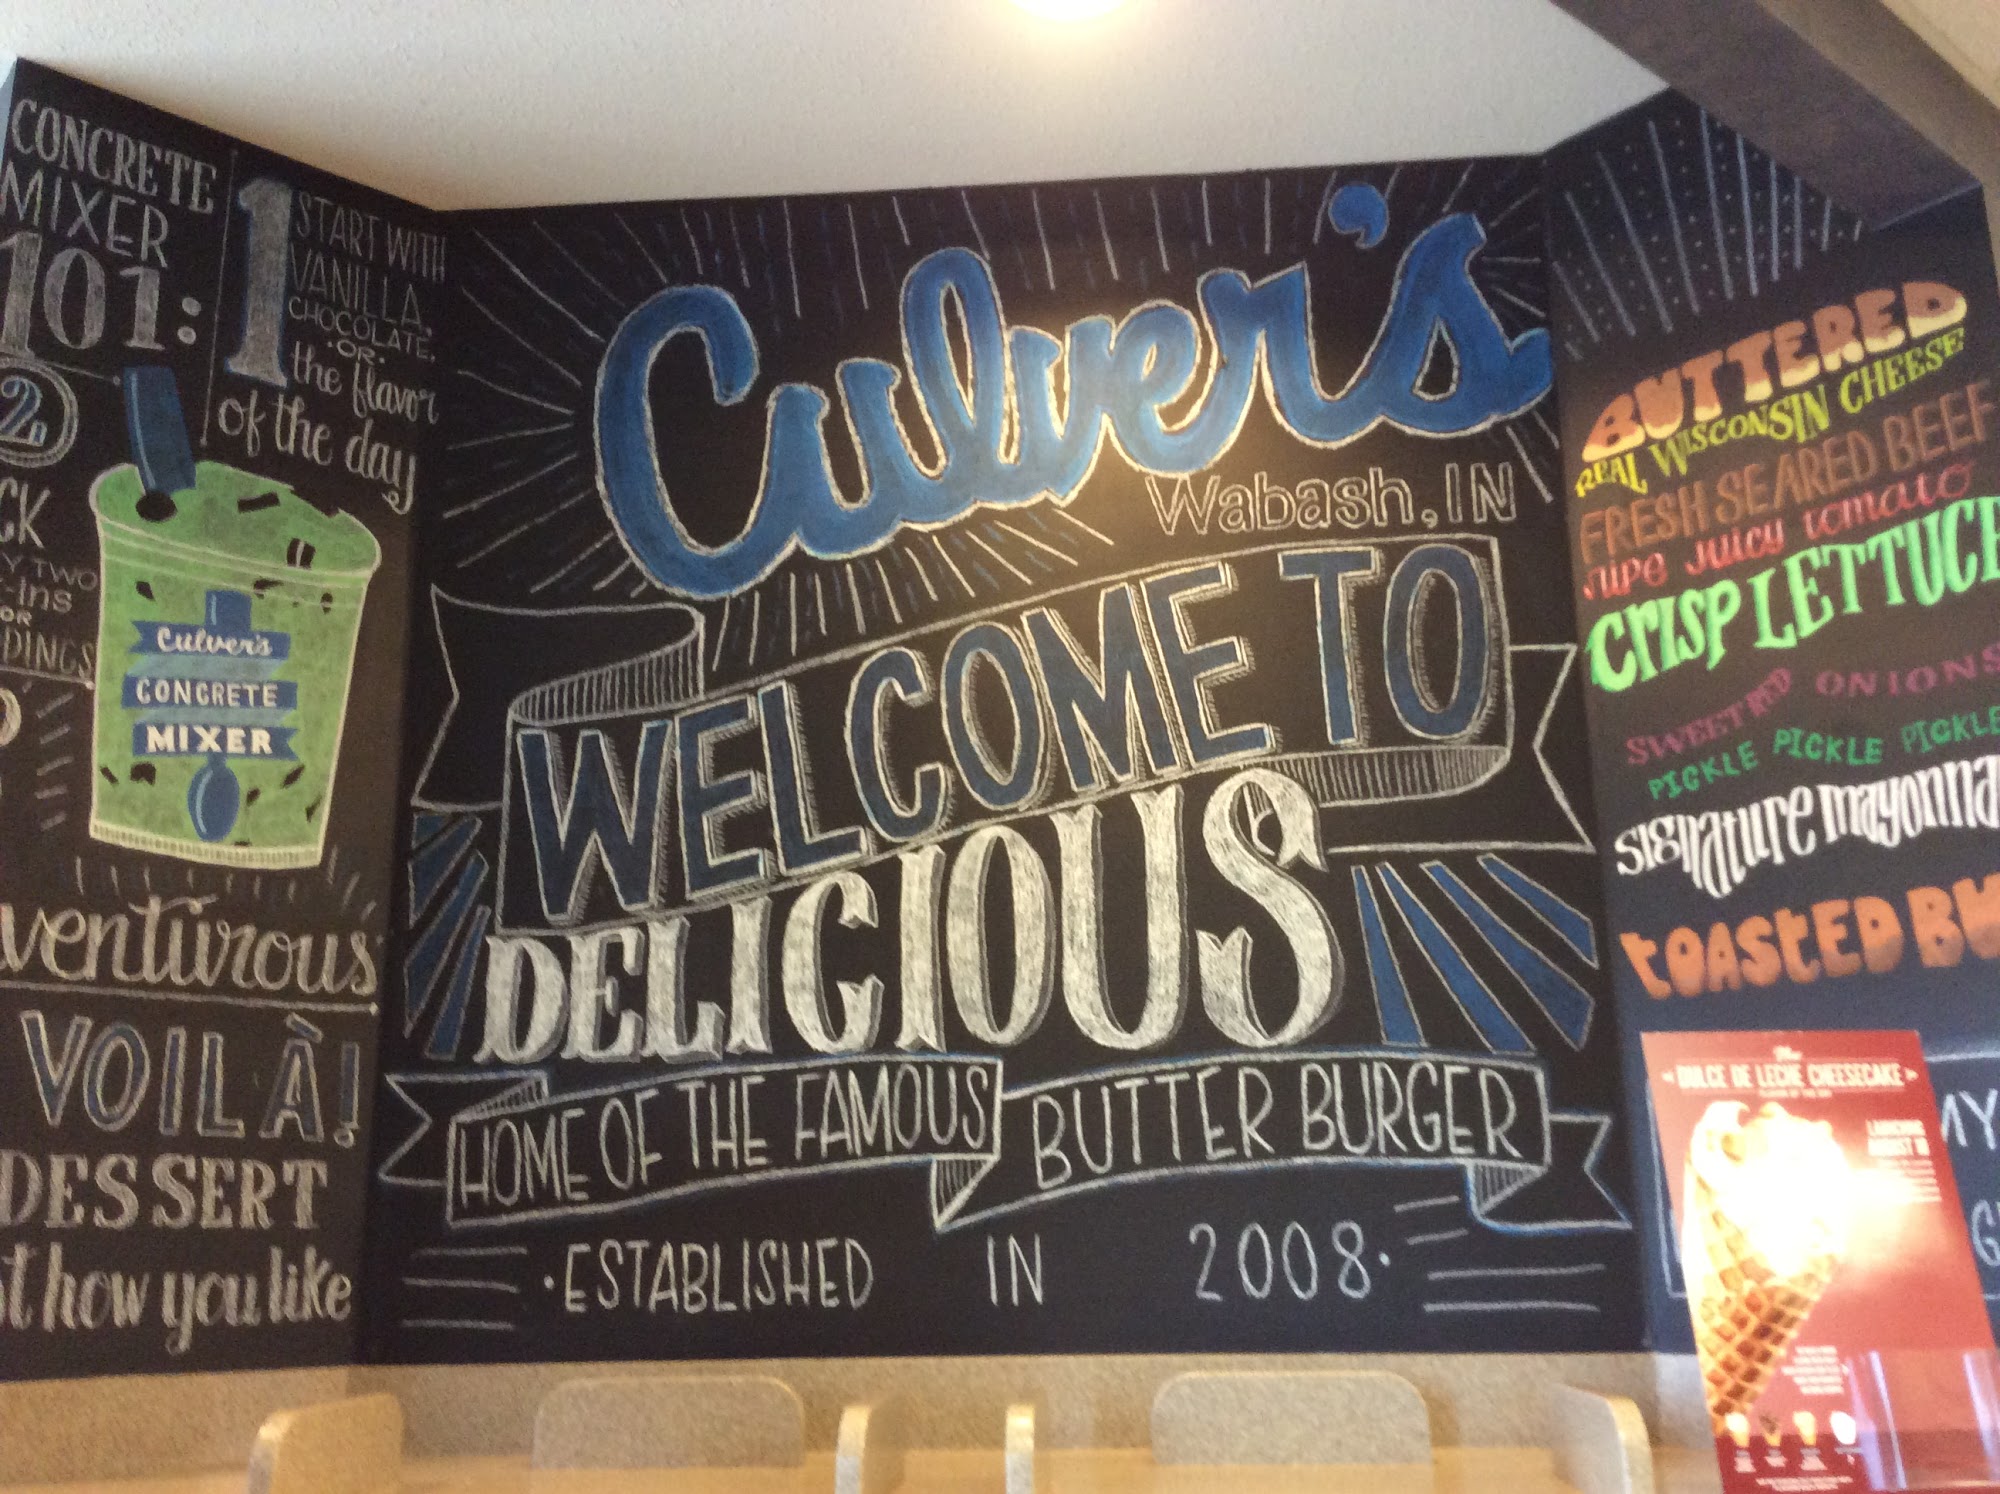 CONCRETE
MIXER
101:
1
START WITH
VANILLA,
CHOCOLATE,
·OR·
the flavor
of the day
2
CK
Y TWO
-Ins
OR
DINGS
Culver's
CONCRETE
MIXER
venturous
VOILÀ!
DESSERT
t how you like
Culver's
Wabash, IN
WELCOME TO
DELICIOUS
HOME OF THE FAMOUS
BUTTER BURGER
·ESTABLISHED IN 2008·
BUTTERED
REAL WISCONSIN CHEESE
FRESH SEARED BEEF
ripe juicy tomato
CRISP LETTUCE
SWEET RED ONIONS
PICKLE PICKLE PICKLE
signature mayonna
toasted BU
The
DULCE DE LECHE CHEESECAKE
FLAVOR OF THE DAY
LAUNCHING
AUGUST 10
MY
G